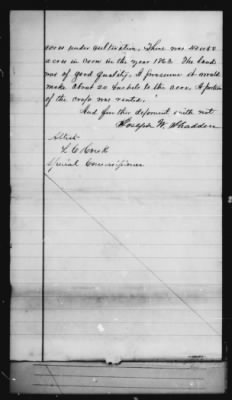 acres under cultivation. There was 40 to 50
acres in Corn in the year 1863. The land
was of good quality. I presume it would
make about 20 bushels to the acre. A portion
of the crops was rented."
And further deponent saith not
Joseph W. Shadden
Attest
L C Houk
Special Commissioner